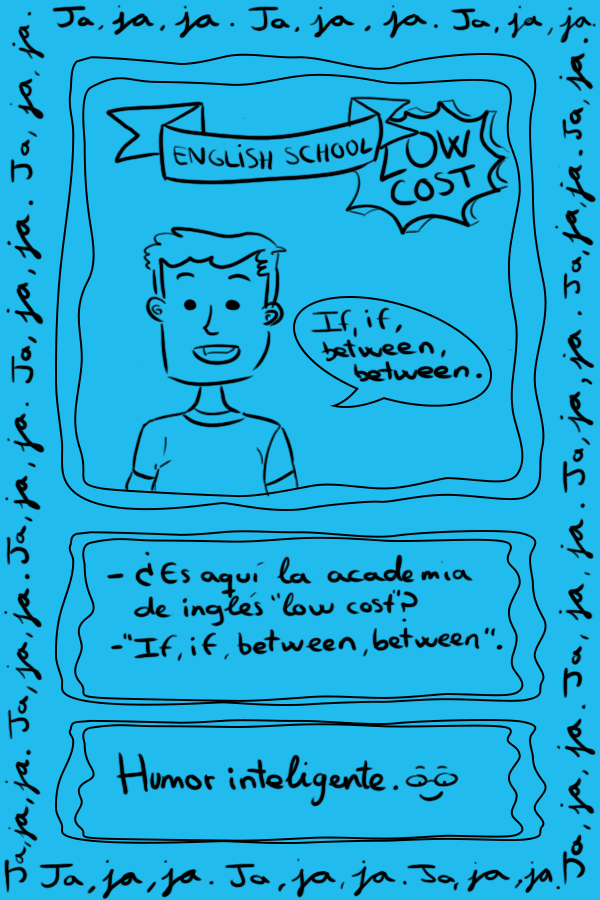 Ja, ja, ja. Ja, ja, ja. Ja, ja, ja.
ENGLISH SCHOOL
LOW
COST
If, if,
between,
between.
- ¿Es aquí la academia
de inglés "low cost"?
-"If, if, between, between".
Humor inteligente.
Ja, ja, ja. Ja, ja, ja. Ja, ja, ja. Ja, ja, ja.
Ja, ja, ja. Ja, ja, ja. Ja, ja, ja. Ja, ja, ja.
Ja, ja, ja. Ja, ja, ja. Ja, ja, ja.